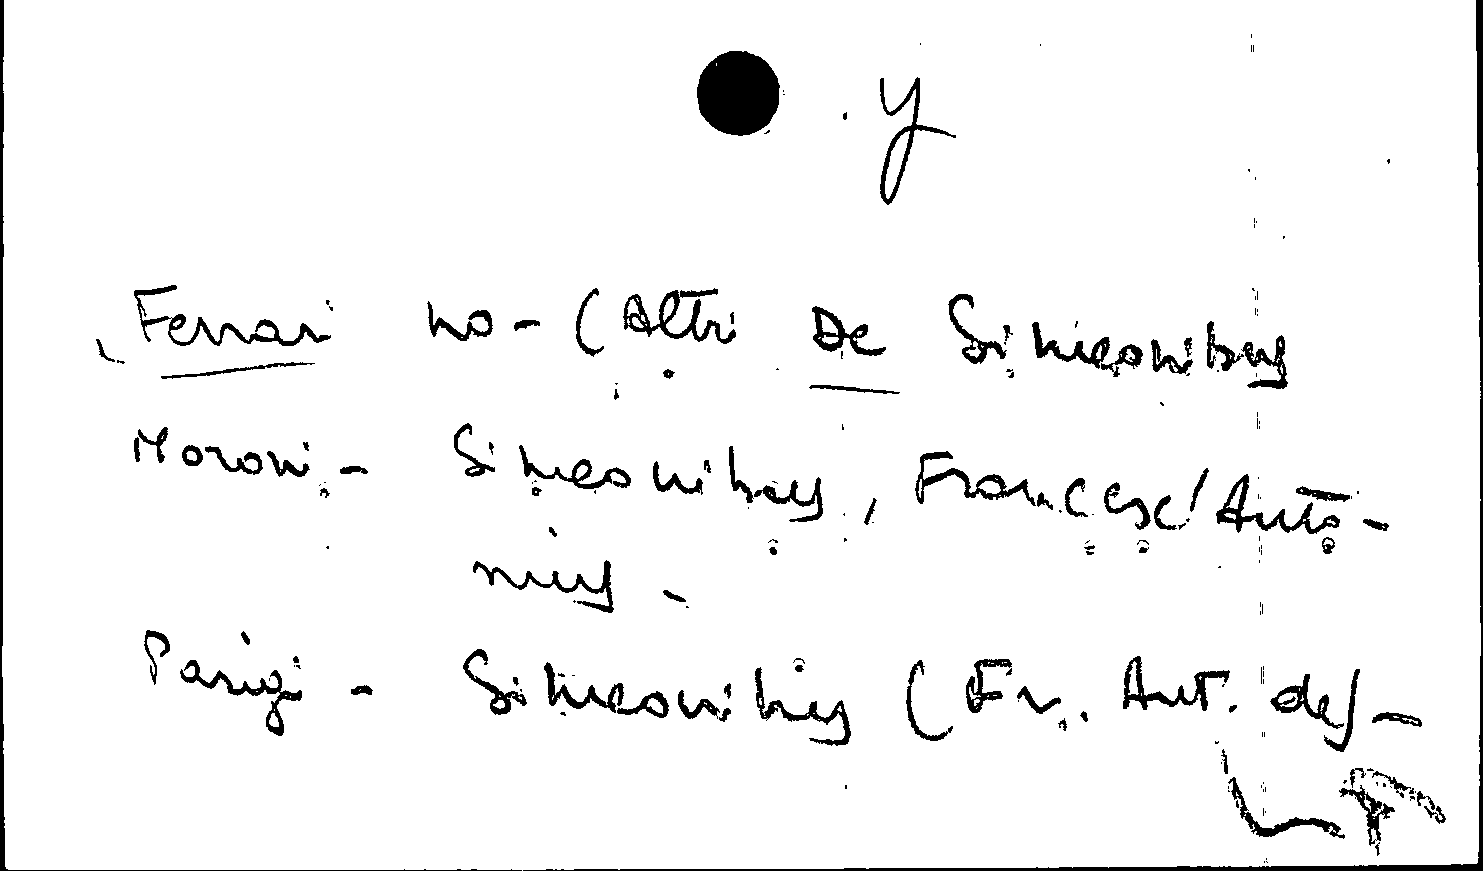 y
Ferrari no - (Altri De Simeonibus
Moroni - Simeonibus, Francesc/ Anto-
nius -
Parigi - Simeonibus (Fr. Ant. de) -